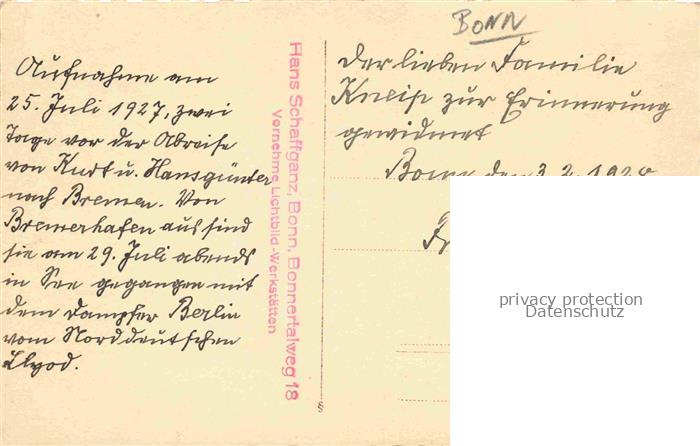 BONN
Aufnahme am
25. Juli 1927, zwei
Tage vor der Abreise
von Kurt u. Hansgünter
nach Bremen. Von
Bremerhafen aus sind
sie am 29. Juli abends
in See gegangen mit
dem Dampfer Berlin
vom Norddeutschen
Llyod.
Hans Schaffganz, Bonn, Bonnertalweg 18
Vornehme Lichtbild-Werkstätten
Der lieben Familie
Kneip zur Erinnerung
gewidmet
Bonn den 3.2.1928
privacy protection
Datenschutz